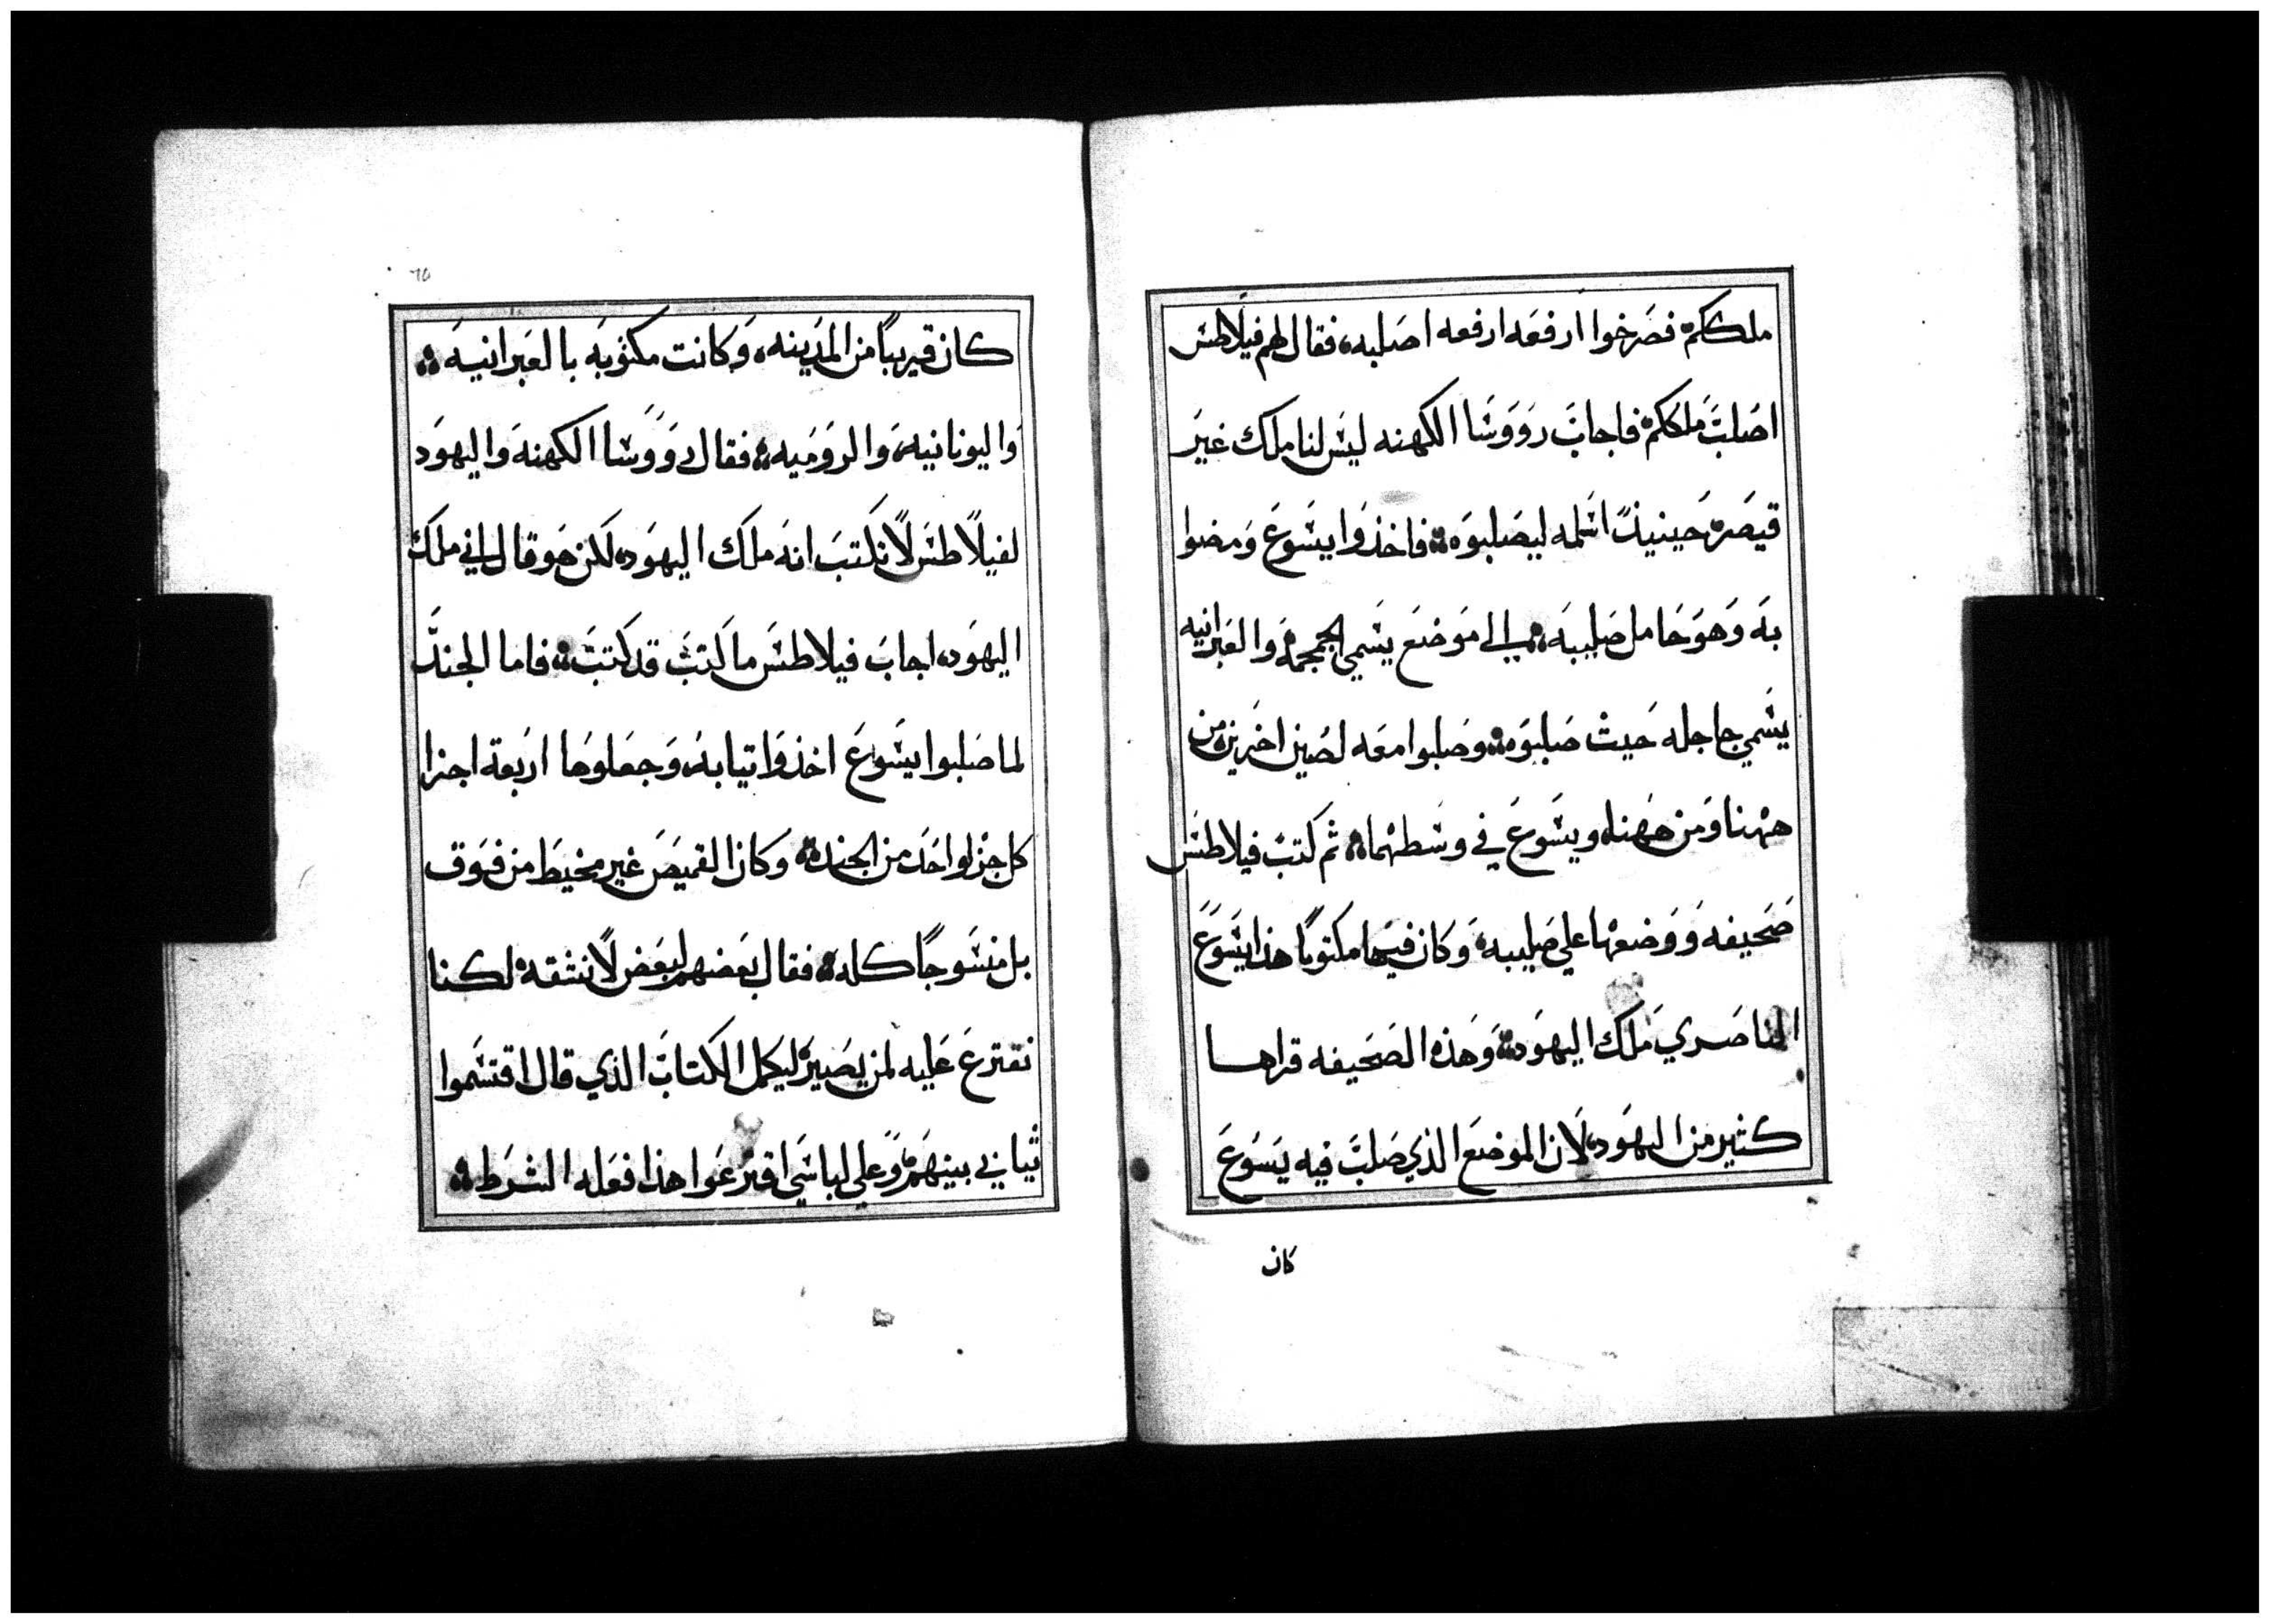 ملككم فصرخوا ارفعه ارفعه اصلبه، فقال لهم فيلاطس
اصلب ملككم فاجاب رووسا الكهنه ليس لنا ملك غير
قيصر حينيذ اسلمه ليصلبوه فاخذوا يسوع ومضوا
به وهو حامل صليبه الي موضع يسمي الجمجمه والعبرانيه
يسمي جاجله حيث صلبوه وصلبوا معه لصين اخرين من
ههنا ومن ههنا، ويسوع في وسطهما ثم كتب فيلاطس
صحيفه ووضعها علي صليبه وكان فيها مكتوبا هذا يسوع
الناصري ملك اليهود وهذه الصحيفه قراها
كثير من اليهود، لان الموضع الذي صلب فيه يسوع
كان
٦٥
كان قريباً من المدينه، وكانت مكتوبه بالعبرانيه
واليونانيه والروميه فقال رووسا الكهنه واليهود
لفيلاطس لا تكتب انه ملك اليهود، لكن هو قال اني ملك
اليهود، اجاب فيلاطس ما كتبت قد كتبت فاما الجند
لما صلبوا يسوع اخذوا تيابه وجعلوها اربعة اجزا
كل جز لواحد من الجند وكان القميص غير مخيط من فوق
بل منسوجاً كله فقال بعضهم لبعض لا نشقه لكنا
نقترع عليه لمن يصير ليكمل الكتاب الذي قال اقتسموا
ثيابي بينهم وعلي لباسي اقترعوا هذا فعله الشرط